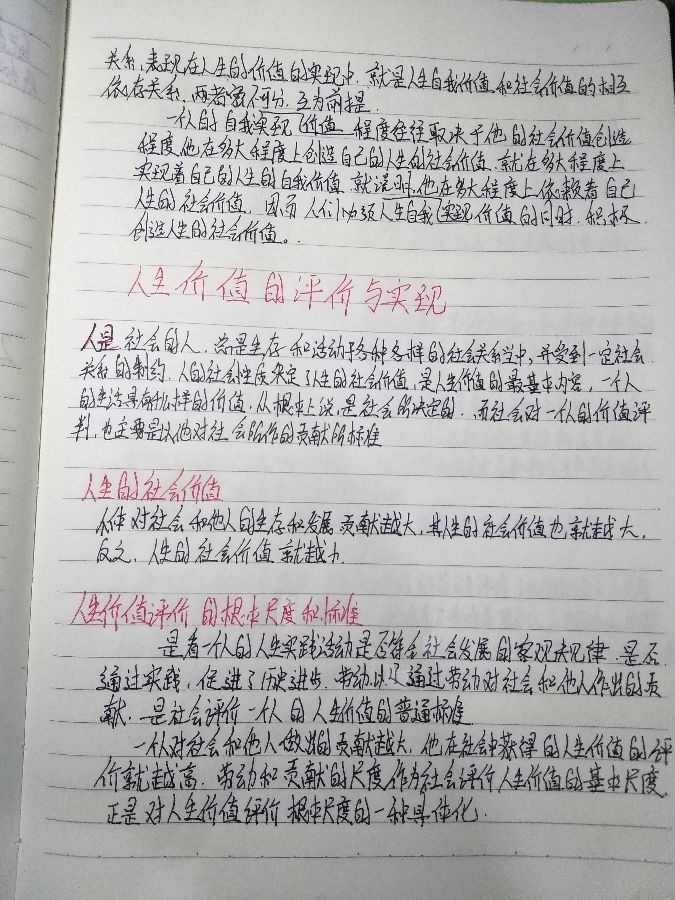 关系,表现在人生的价值的实现中,就是人生自我价值和社会价值的相互
依存关系,两者密不可分,互为前提.
一个人的自我实现价值 程度往往取决于他的社会价值创造
程度,他在多大程度上创造自己的人生的社会价值,就在多大程度上
实现着自己的人生的自我价值,就说明,他在多大程度上依赖着自己
人生的社会价值,因而人们必须人生自我实现价值的同时,积极
创造人生的社会价值。
人生价值的评价与实现
人是社会的人,总是生存和活动于各种各样的社会关系当中,并受到一定社会
关系的制约,人的社会性质决定了人生的社会价值,是人生价值的最基本内容,一个人
的生活具有什么样的价值,从根本上说,是社会所决定的,而社会对一个人的价值评
判,也主要是以他对社会所作的贡献所标准
人生的社会价值
个体对社会和他人的生存和发展贡献越大,其人生的社会价值也就越大,
反之,人生的社会价值就越小.
人生价值评价的根本尺度和标准
是看一个人的人生实践活动是否符合社会发展的客观规律,是否
通过实践,促进了历史进步.劳动以及通过劳动对社会和他人作出的贡
献,是社会评价一个人的人生价值的普遍标准
一个人对社会和他人做出的贡献越大,他在社会中获得的人生价值的评
价就越高.劳动和贡献的尺度作为社会评价人生价值的基本尺度,
正是对人生价值评价根本尺度的一种具体化.